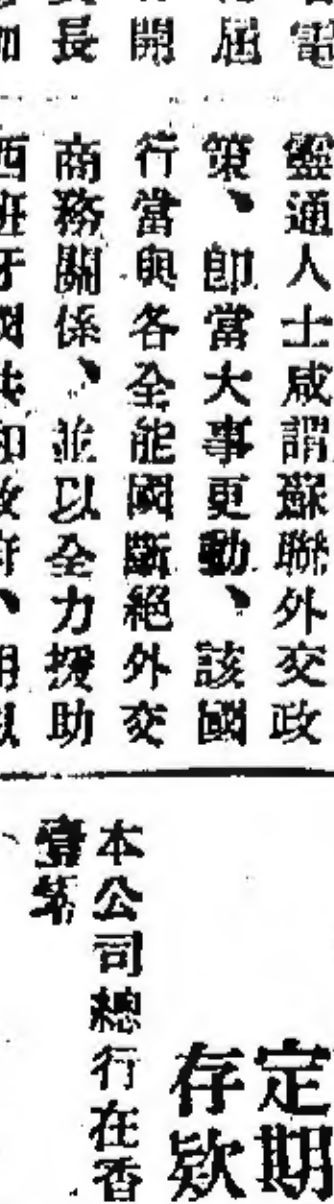 電
屆
開
長
加
靈通人士咸謂蘇聯外交政
策、卽當大事更動、該國
行當與各全能國斷絕外交
商務關係、並以全力援助
西班牙國共和政府、明
定期
存欵
本公司總行在香
壹第